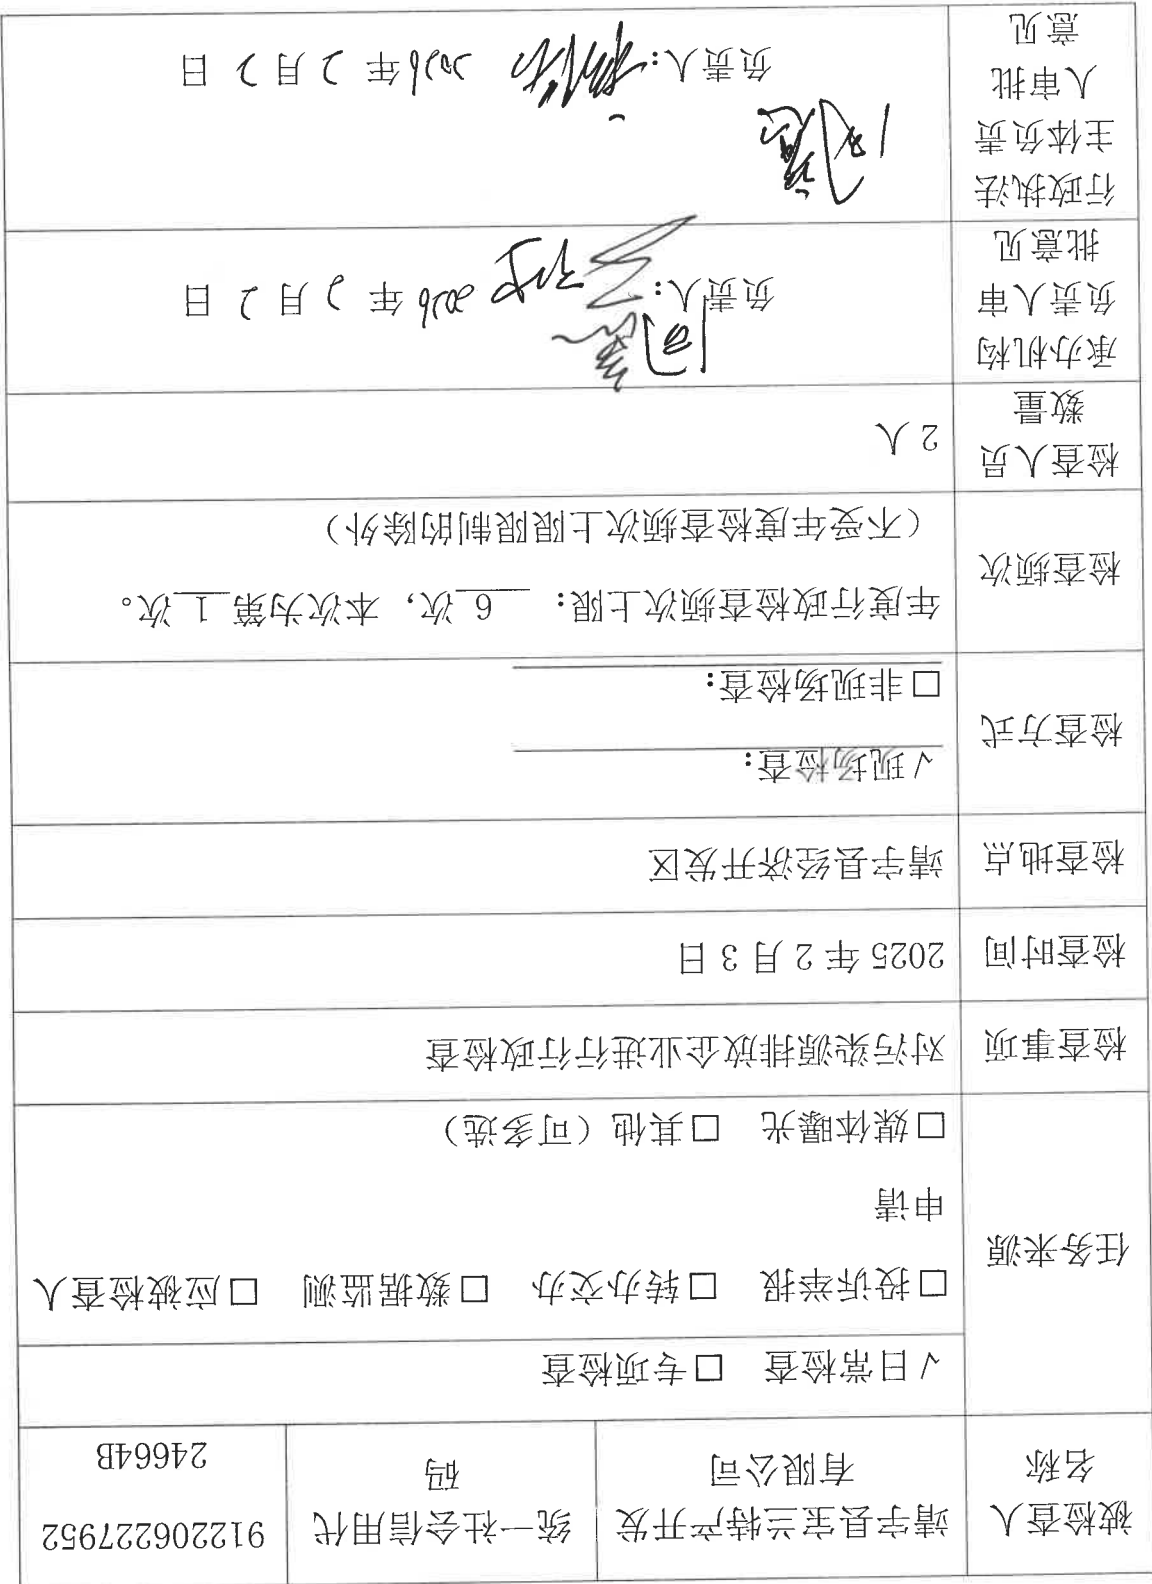 被检查人
名称
靖宇县宝兰特产开发
有限公司
统一社会信用代
码
912206227952
24664B
任务来源
√日常检查 □专项检查
□投诉举报 □转办交办 □数据监测 □应被检查人
申请
□媒体曝光 □其他（可多选）
检查事项
对污染源排放企业进行行政检查
检查时间
2025 年 2 月 3 日
检查地点
靖宇县经济开发区
检查方式
√现场检查：
□非现场检查：
检查频次
年度行政检查频次上限： 6 次，本次为第 1 次。
（不受年度检查频次上限限制的除外）
检查人员
数量
2 人
承办机构
负责人审
批意见
同意
负责人： 2026 年 2 月 2 日
行政执法
主体负责
人审批
意见
同意
负责人： 2026 年 2 月 2 日